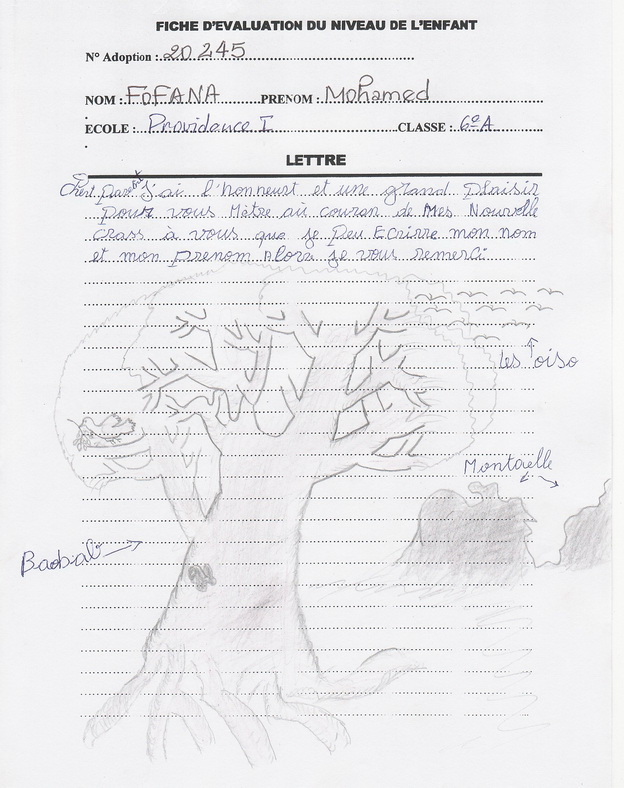 FICHE D'EVALUATION DU NIVEAU DE L'ENFANT
N° Adoption : 20 245
NOM : FOFANA PRENOM : Mohamed
ECOLE : Providence I CLASSE : 6e A
LETTRE
Chert J'ai l'honneurt et une grand plaisir
pour vous Mètre au couran de Mes Nouvelle
à vous que je peu Ecrirre mon nom
et mon prenom Alorz je vous remerci
les oiso
Montaelle
Baobab